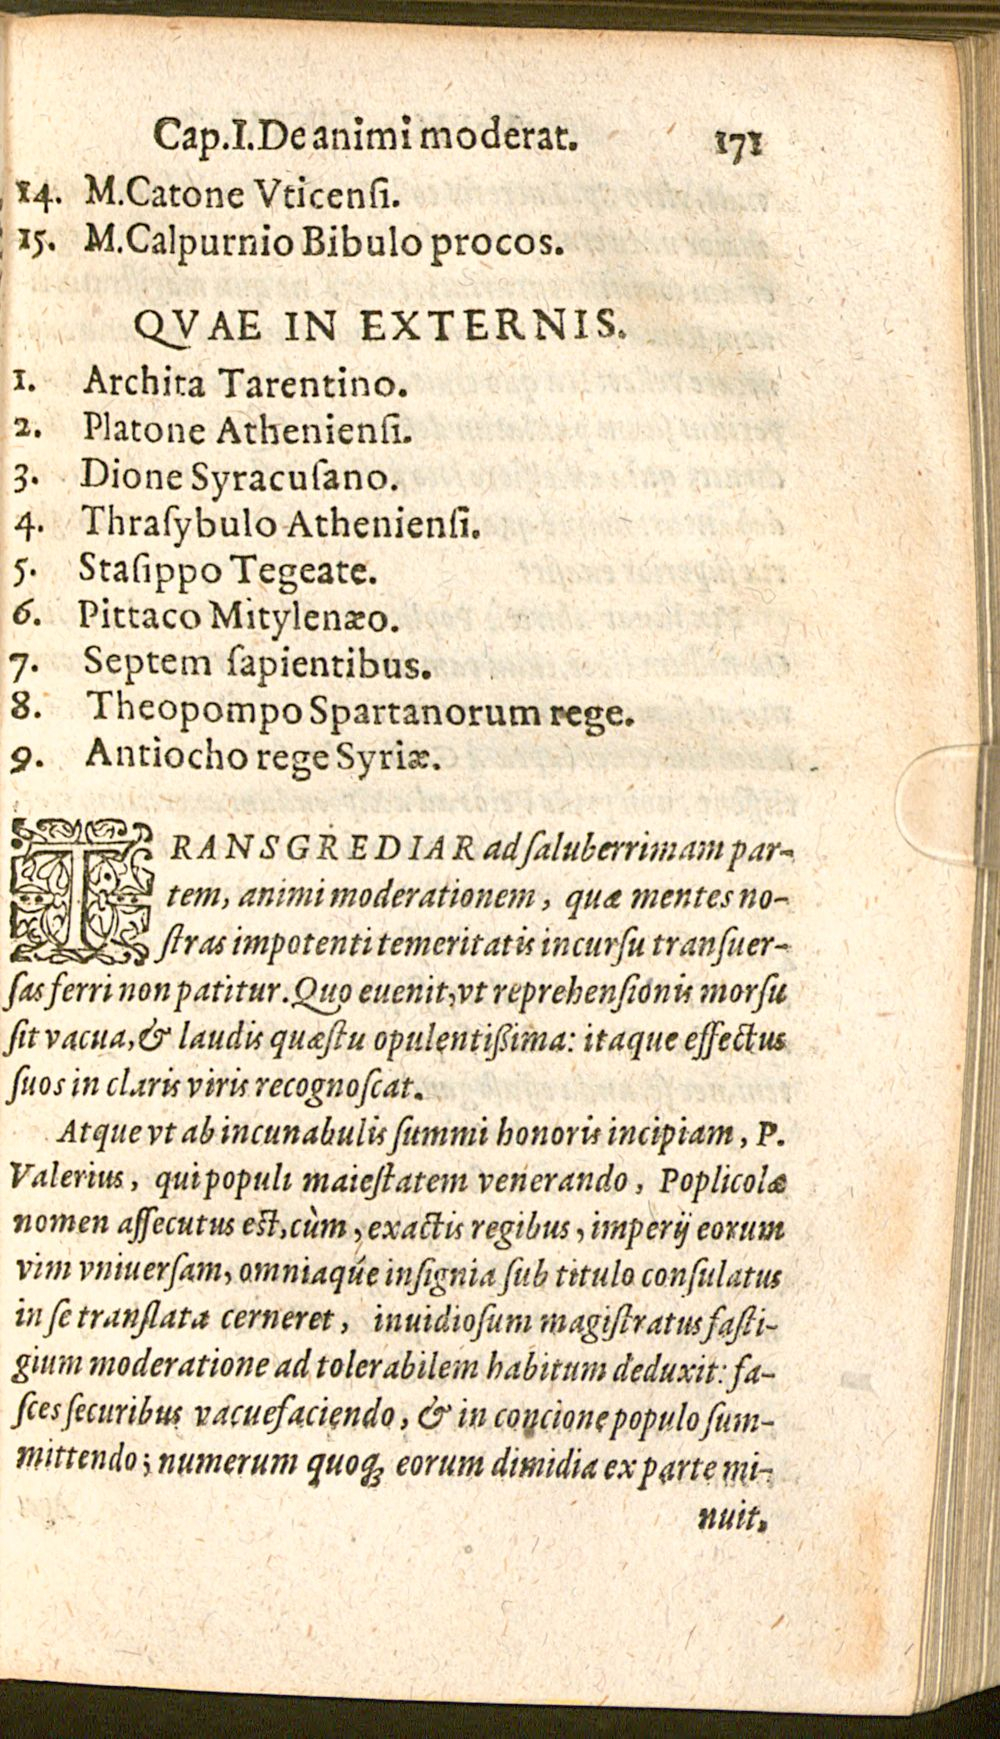 Cap.I.De animi moderat. 171
14. M.Catone Vticenſi.
15. M.Calpurnio Bibulo procos.
QVAE IN EXTERNIS.
1. Archita Tarentino.
2. Platone Athenienſi.
3. Dione Syracuſano.
4. Thraſybulo Athenienſi.
5. Staſippo Tegeate.
6. Pittaco Mitylenæo.
7. Septem ſapientibus.
8. Theopompo Spartanorum rege.
9. Antiocho rege Syriæ.
TRANSGREDIAR ad ſaluberrimam par-
tem, animi moderationem, quæ mentes no-
ſtras impotenti temeritatis incurſu tranſuer-
ſas ferri non patitur. Quo euenit, vt reprehenſionis morſu
ſit vacua, & laudis quæſtu opulentißima: itaque effectus
ſuos in claris viris recognoſcat.
Atque vt ab incunabulis ſummi honoris incipiam, P.
Valerius, qui populi maieſtatem venerando, Poplicolæ
nomen aſſecutus eſt, cùm, exactis regibus, imperij eorum
vim vniuerſam, omniaqúe inſignia ſub titulo conſulatus
in ſe tranſlata cerneret, inuidioſum magiſtratus faſti-
gium moderatione ad tolerabilem habitum deduxit: fa-
ſces ſecuribus vacuefaciendo, & in concione populo ſum-
mittendo; numerum quoq; eorum dimidia ex parte mi-
nuit.